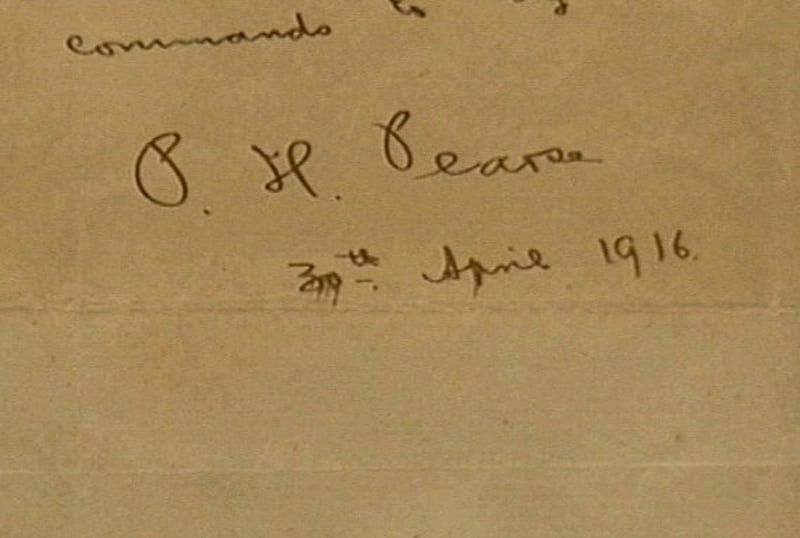 commands
P. H. Pearse
30th. April 1916.